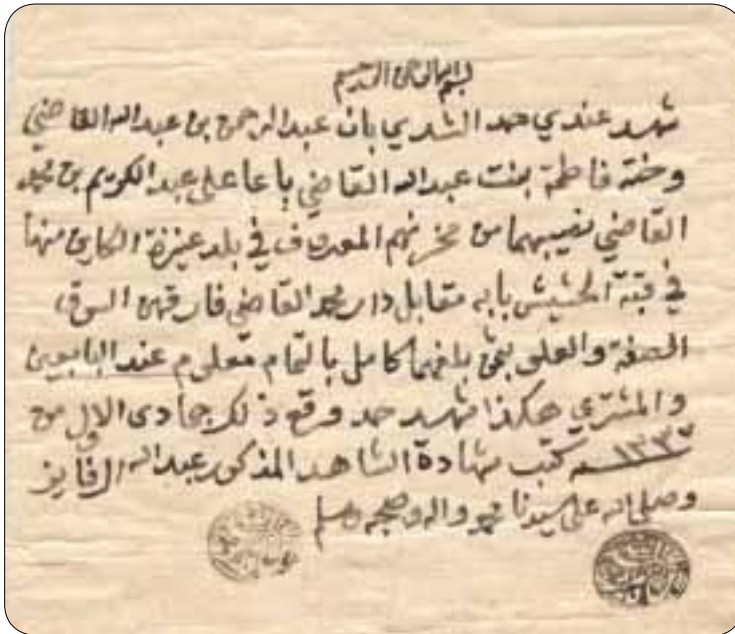 بسم الله الرحمن الرحيم
شهد عندي حمد الشدي بان عبدالرحمن بن عبدالله القاضي
وخته فاطمة بنت عبدالله القاضي باعا على عبدالكريم بن محمد
القاضي نصيبهما من مخزنهم المعروف في بلد عنيزة الكاين منها
في قبة الحشيش بابه مقابل دار محمد القاضي فارقهن السوق
الصفة والعلو بثمن بلغهما كامل بالتمام معلوم عند البايعين
والمشتري هكذا شهد حمد وقع ذلك جمادى الاول من
١٣٣٢ كتب شهادة الشاهد المذكور عبدالله الفايز
وصلى الله على سيدنا محمد واله وصحبه وسلم